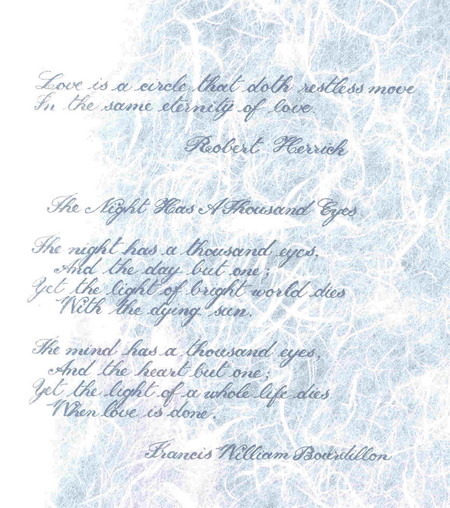 Love is a circle that doth restless move
In the same eternity of love.
Robert Herrick
The Night Has A Thousand Eyes
The night has a thousand eyes,
And the day but one;
Yet the light of bright world dies
With the dying sun.
The mind has a thousand eyes,
And the heart but one;
Yet the light of a whole life dies
When love is done.
Francis William Bourdillon